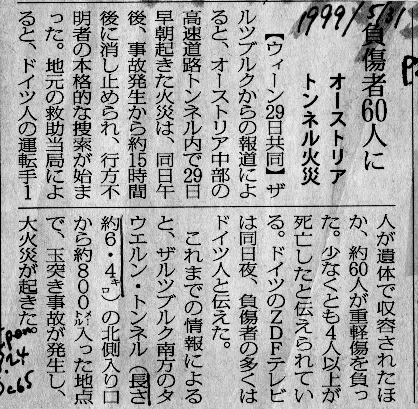 1999/5/31
負傷者60人に
オーストリア
トンネル火災
【ウィーン29日共同】ザ
ルツブルクからの報道によ
ると、オーストリア中部の
高速道路トンネル内で29日
早朝起きた火災は、同日午
後、事故発生から約15時間
後に消し止められ、行方不
明者の本格的な捜索が始ま
った。地元の救助当局によ
ると、ドイツ人の運転手1
人が遺体で収容されたほ
か、約60人が重軽傷を負っ
た。少なくとも4人以上が
死亡したと伝えられてい
る。ドイツのZDFテレビ
は同日夜、負傷者の多くは
ドイツ人と伝えた。
これまでの情報による
と、ザルツブルク南方のタ
ウエルン・トンネル（長さ
約6・4㌔）の北側入り口
から約800㍍入った地点
で、玉突き事故が発生し、
大火災が起きた。